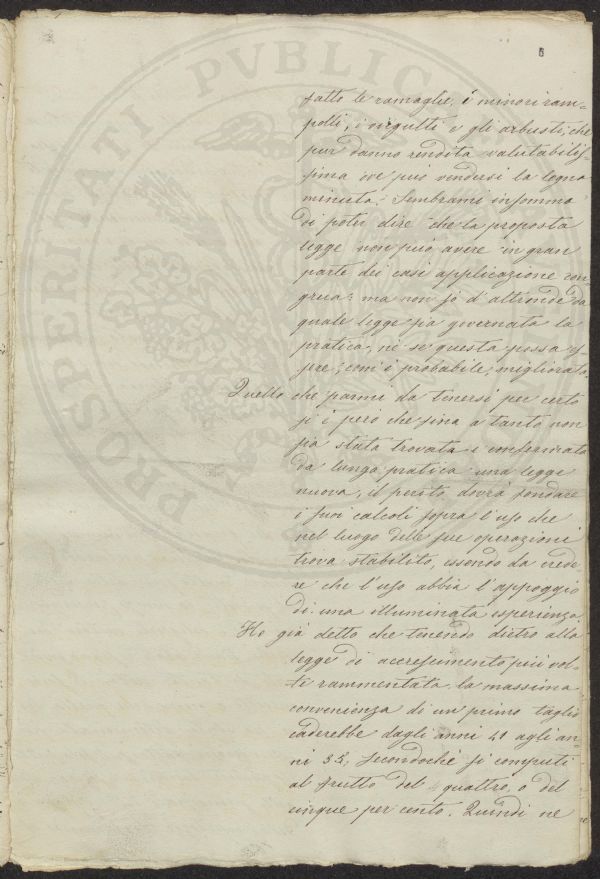 PROSPERITATI PVBLICAE
6
fatto le ramaglie, i minori ram=
polli, i virgulti e gli arbusti, che
pur danno rendita valutabilis=
sima ove può vendersi la legna
minuta. Sembrami insomma
di poter dire che la proposta
legge non può avere in gran
parte dei casi applicazione con=
grua; ma non so d'altronde da
quale legge sia governata la
pratica, nè se questa possa es=
sere, com'è probabile, migliorata.
Quello che parmi da tenersi per certo
si è però che fino a tanto non
sia stata trovata e confermata
da lunga pratica una legge
nuova, il perito dovrà fondare
i suoi calcoli sopra l'uso che
nel luogo delle sue operazioni
trova stabilito, essendo da crede=
re che l'uso abbia l'appoggio
di una illuminata esperienza.
Ho già detto che tenendo dietro alla
legge di accrescimento più vol=
te rammentata la massima
convenienza di un primo taglio
caderebbe dagli anni 41 agli an=
ni 35, secondochè si computi
al frutto del quattro, o del
cinque per cento. Quindi ne